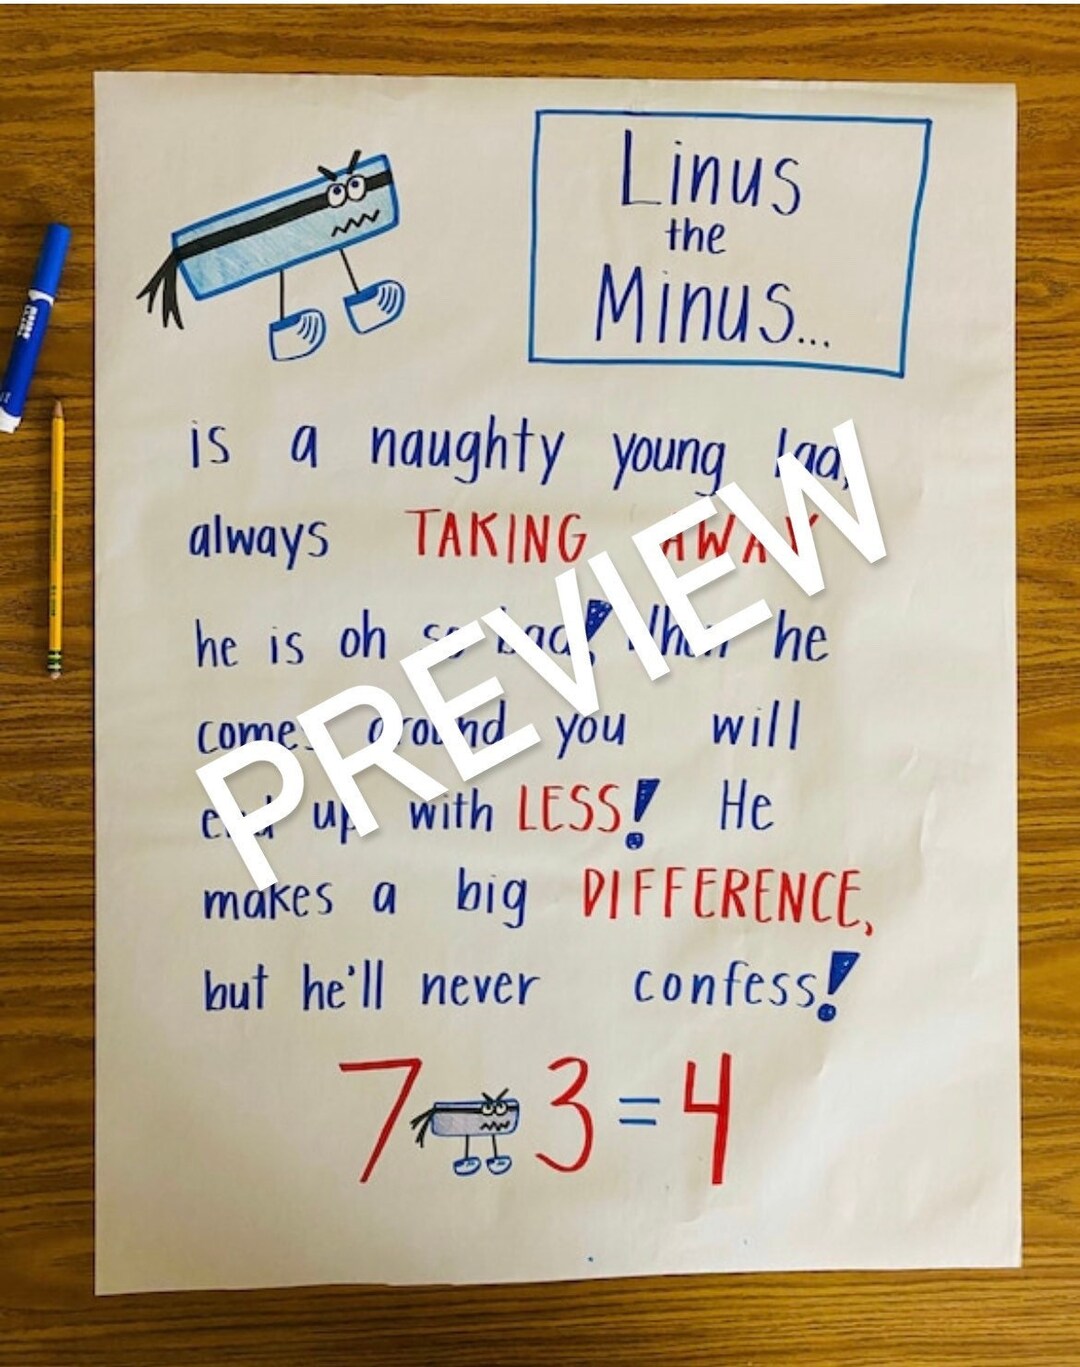 Linus
the
Minus...
is a naughty young lad,
always TAKING AWAY
he is oh so bad! When he
comes around you will
end up with LESS! He
makes a big DIFFERENCE,
but he'll never confess!
7 3 = 4
PREVIEW